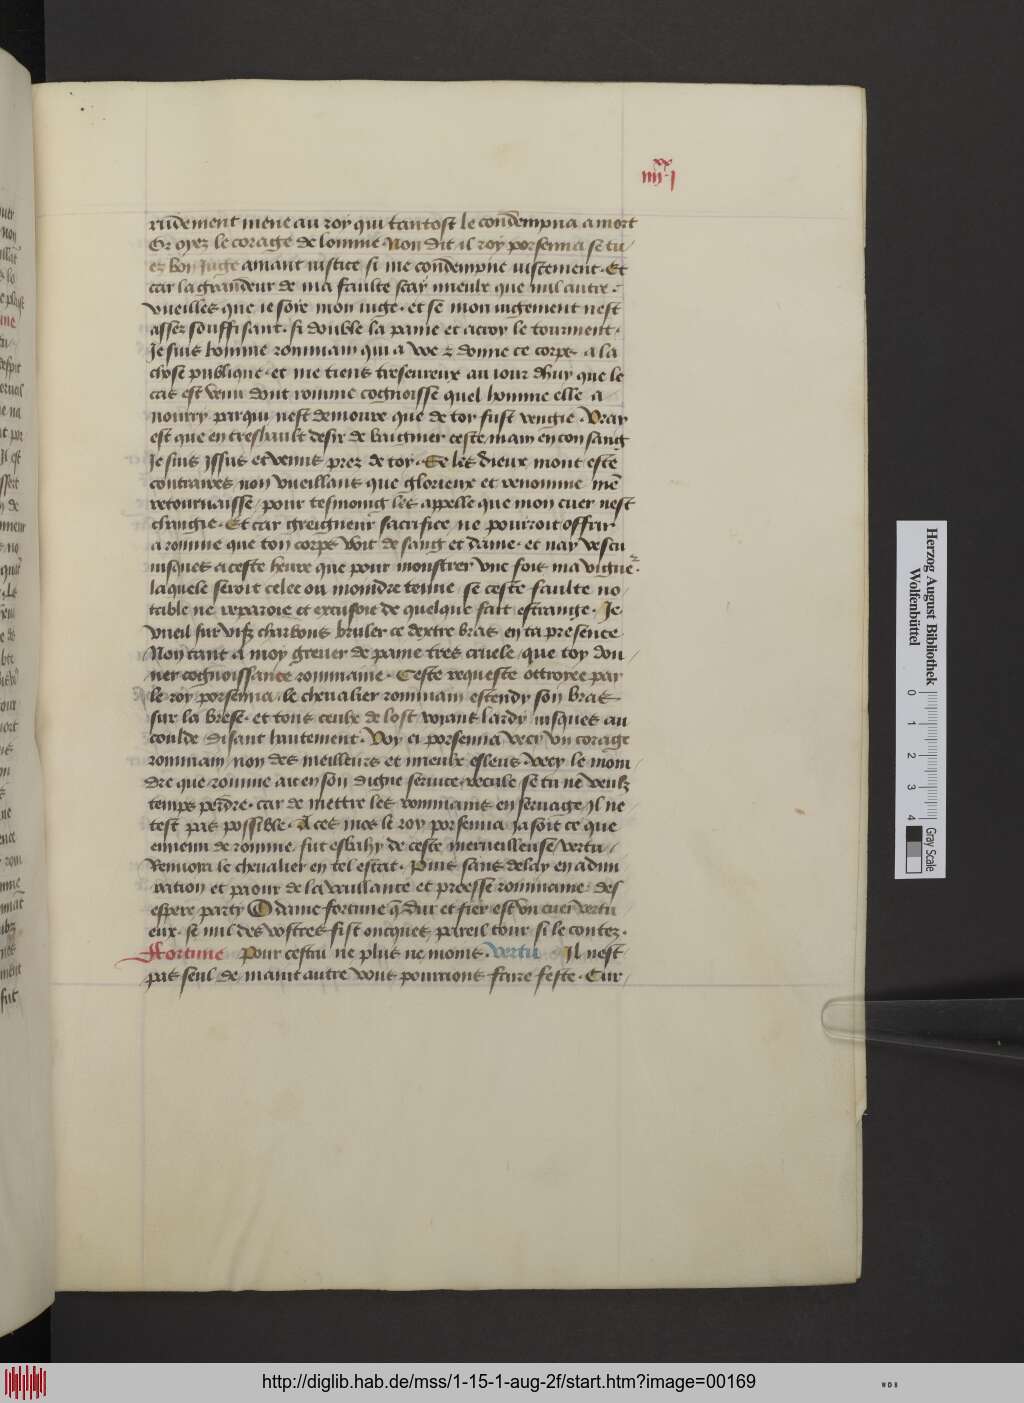 xx
iiii · j
rudement mene au roy qui tantost le condempna a mort
Or oyez le corage de lomme · Non dit il roy porsenna se tu /
es bon Juge amant iustice si me condempne iustement · Et
car la grandeur de ma faulte scay mieulx que nul autre ·
vueilles que ie soye mon iuge · et se mon iugement nest
assez souffisant · si double la paine et accoy le tourment ·
Je suis homme rommain qui a voe z donne ce corps a la
chose publique · et me tiens treseureux au iour dhuy que le
cas est venu dont romme cognoisse quel homme elle a
nourry par qui nest demoure que de toy fust vengie · Vray
est que en treshault desir de baigner ceste main en ton sang
Je suis yssus et venus prez de toy · Se les dieux mont este
contraires non vueillans que glorieux et renomme me
retournaisse / pour tesmoing les appelle que mon cuer nest
changie · Et car greigneur sacrifice ne pourroit offrir
a romme que ton corps voit de sang et dame · et nay vescu
iusques a ceste heure que pour monstrer vne fois ma vigueur ·
laquele seroit celee ou moindre tenue / se ceste faulte no /
table ne reparoie et excusoie de quelque fait estrange · Je
vueil sur vifz charbons bruler ce dextre bras en ta presence
Non tant a moy grever de paine tres cruele / que toy don /
ner cognoissance rommaine · Ceste requeste ottroyee par
le roy porsenna · le chevalier rommain estendy son bras
sur la brese · et tous ceulx de lost voyans lardy iusques au
coulde / disant haultement · Voy ci porsenna vecy vn corage
rommain / non des meilleurs et mieulx esleus · vecy le moin /
dre que romme ait en son digne service / recule se tu ne veulz
temps perdre · car de mettre les rommains en servage / Il ne
test pas possible · A ces mos le roy porsenna Ja soit ce que
ennemi de romme / fut esbahy de ceste merveilleuse vertu /
Renvoya le chevalier en tel estat · Puis sans delay en admi
ration et paour de la vaillance et proesse rommaine des
espere party O dame fortune que dur et fier est vn cuer vertu
eux · se nul des vostres fist oncques pareil tour si le contez ·
Fortune Pour cestui ne plus ne moins · Vertu Il nest
pas seul de maint autre vous pourrions faire feste · Cur /
Herzog August Bibliothek
Wolfenbüttel
0 1 2 3 4
Gray Scale
http://diglib.hab.de/mss/1-15-1-aug-2f/start.htm?image=00169